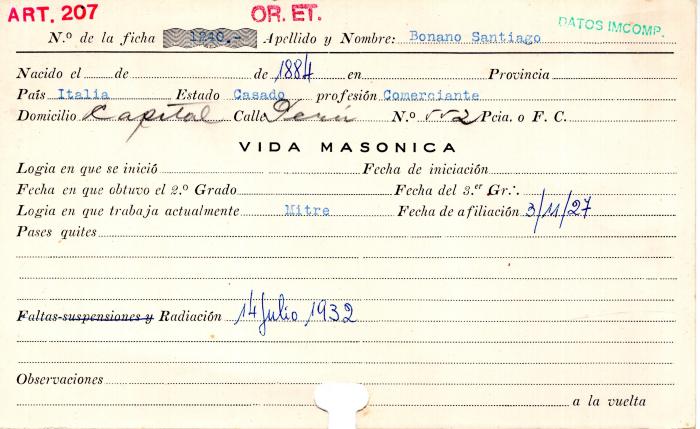 ART. 207 OR. ET. DATOS IMCOMP.
N.º de la ficha 1240.- Apellido y Nombre: Bonano Santiago
Nacido el de de 1884 en Provincia
País Italia Estado Casado profesión Comerciante
Domicilio Capital Calle Perú N.º 552 Pcia. o F. C.
VIDA MASONICA
Logia en que se inició Fecha de iniciación
Fecha en que obtuvo el 2.º Grado Fecha del 3.er Gr∴
Logia en que trabaja actualmente Mitre Fecha de afiliación 3/11/27
Pases quites
Faltas-suspensiones y Radiación 14 Julio 1932
Observaciones
a la vuelta